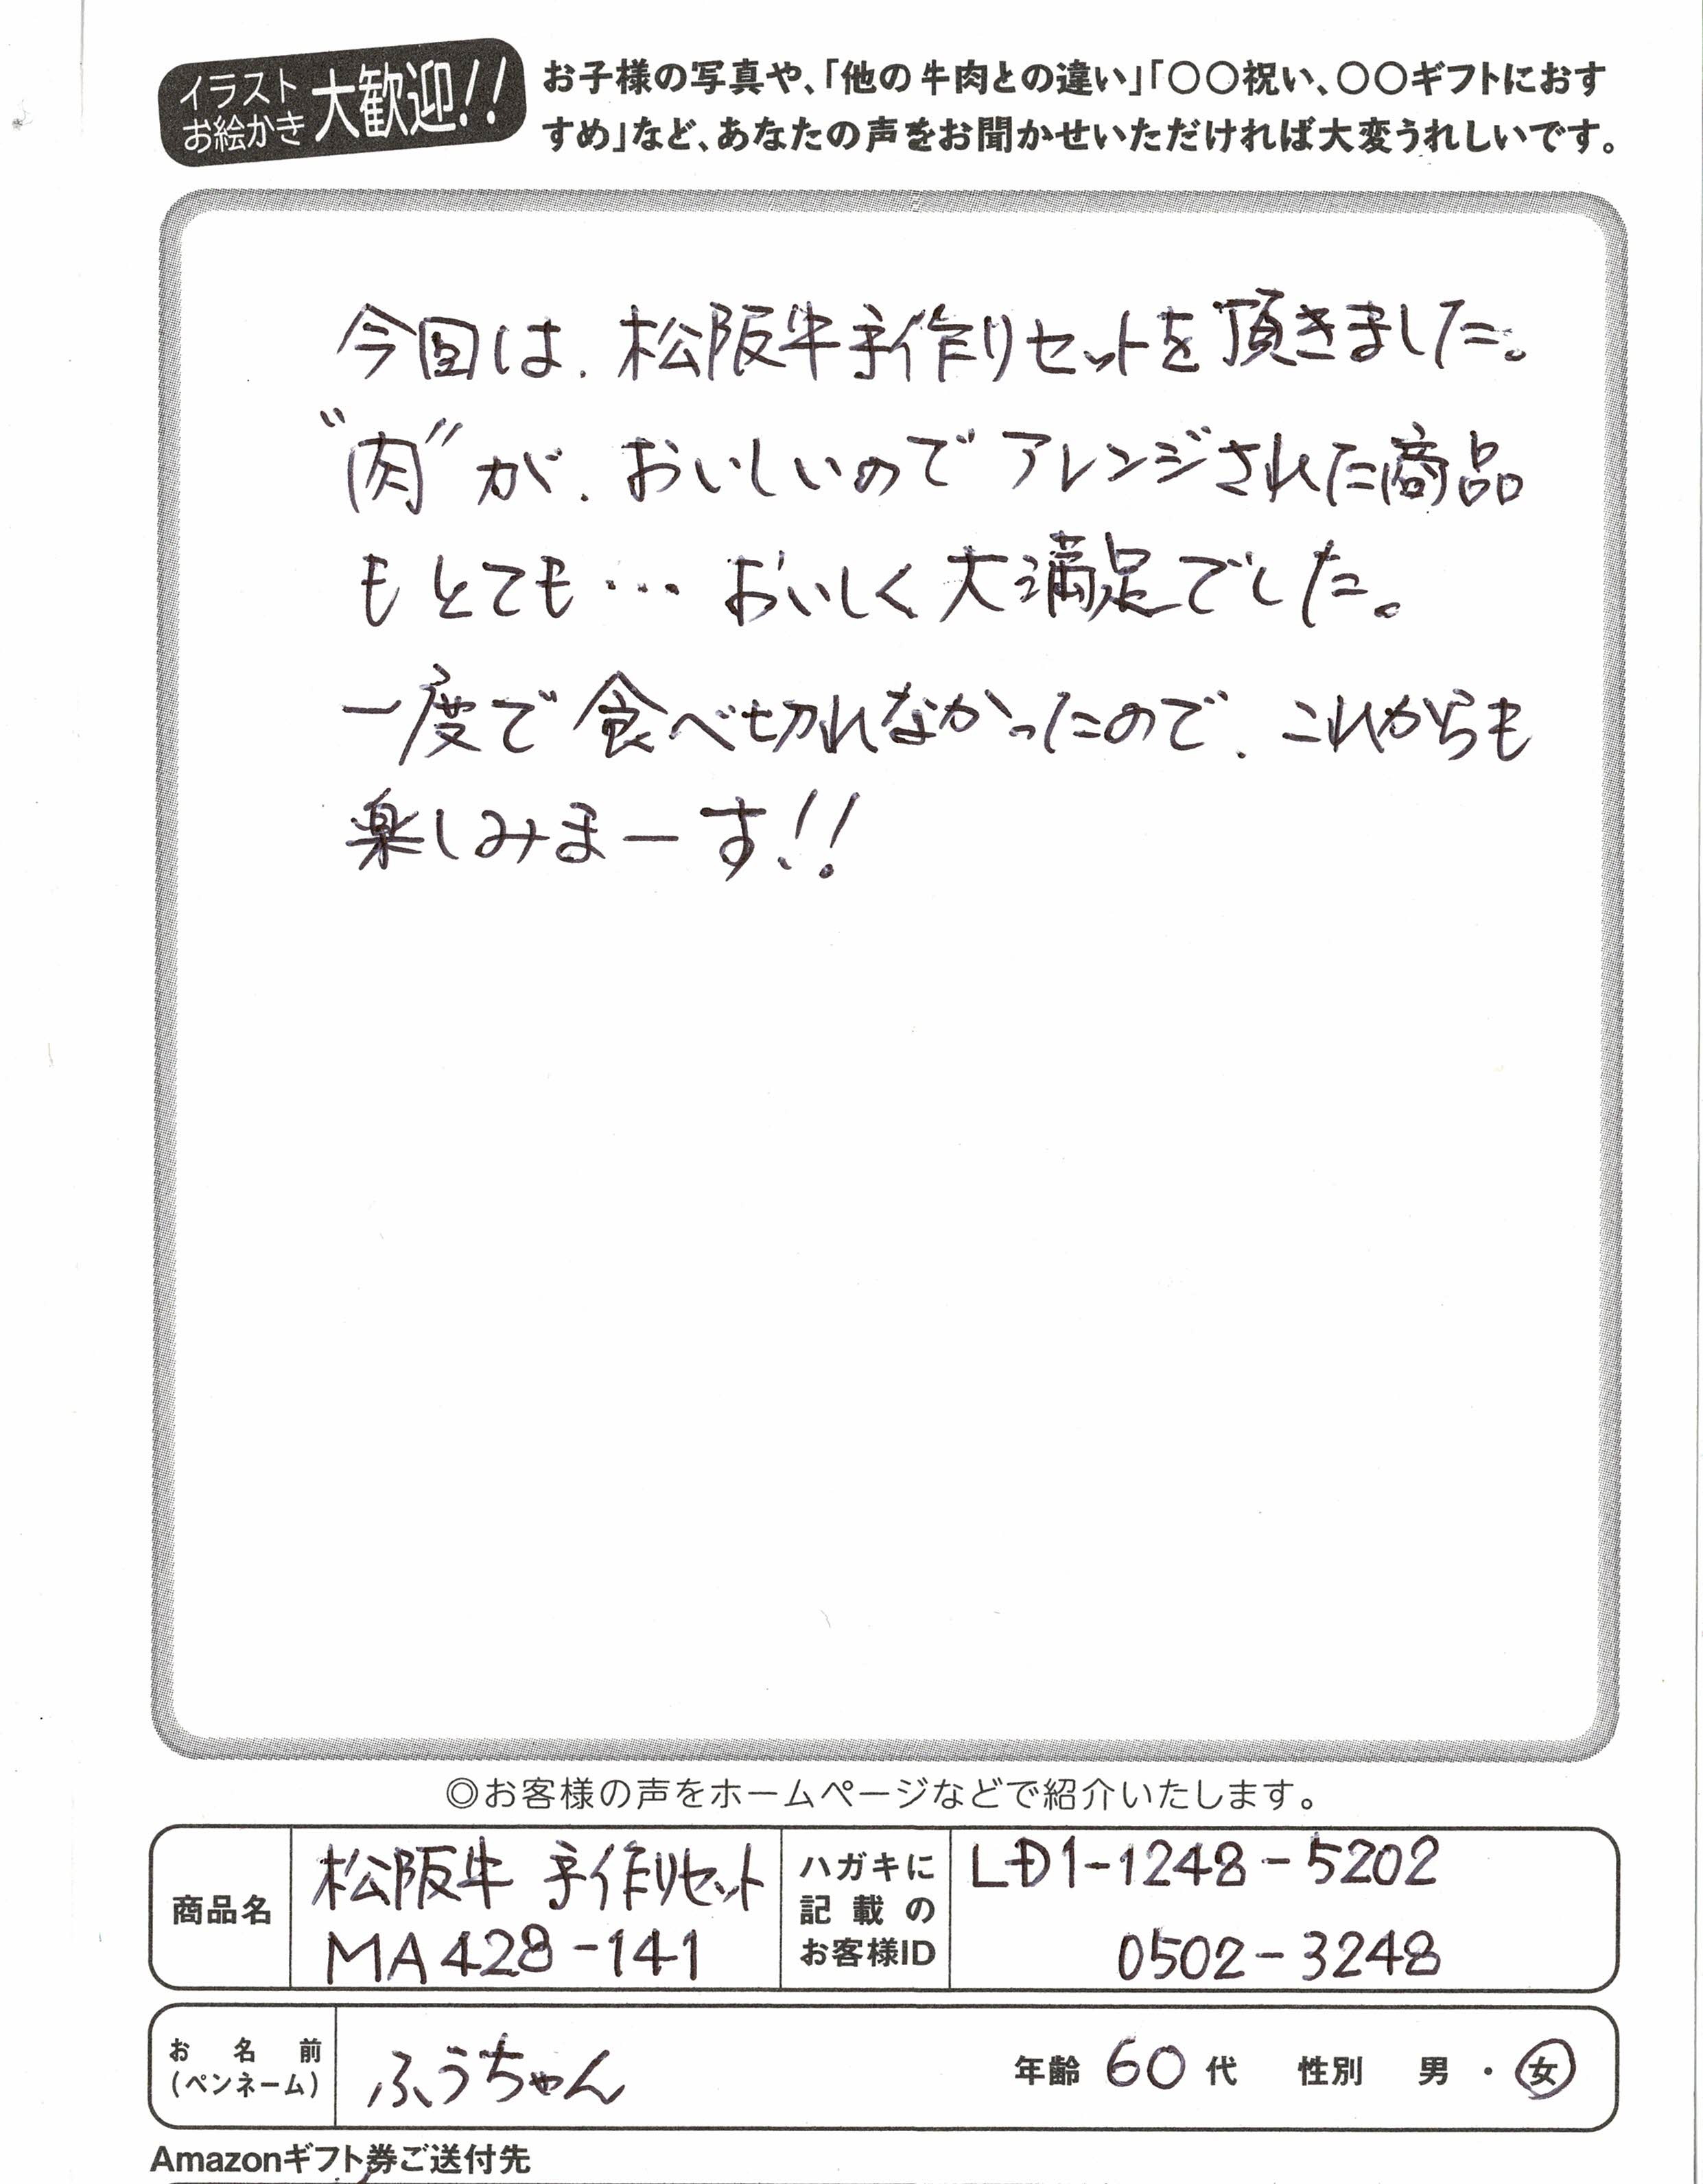 イラスト
お絵かき
大歓迎!!
お子様の写真や、「他の牛肉との違い」「〇〇祝い、〇〇ギフトにおす
すめ」など、あなたの声をお聞かせいただければ大変うれしいです。
今回は、松阪牛手作りセットを頂きました。
“肉”が、おいしいのでアレンジされた商品
もとても…おいしく大満足でした。
一度で食べ切れなかったので、これからも
楽しみまーす!!
◎お客様の声をホームページなどで紹介いたします。
商品名
松阪牛 手作りセット
MA428-141
ハガキに
記載の
お客様ID
LD1-1248-5202
0502-3248
お名前
(ペンネーム)
ふうちゃん
年齢 60代 性別 男・女
Amazonギフト券ご送付先